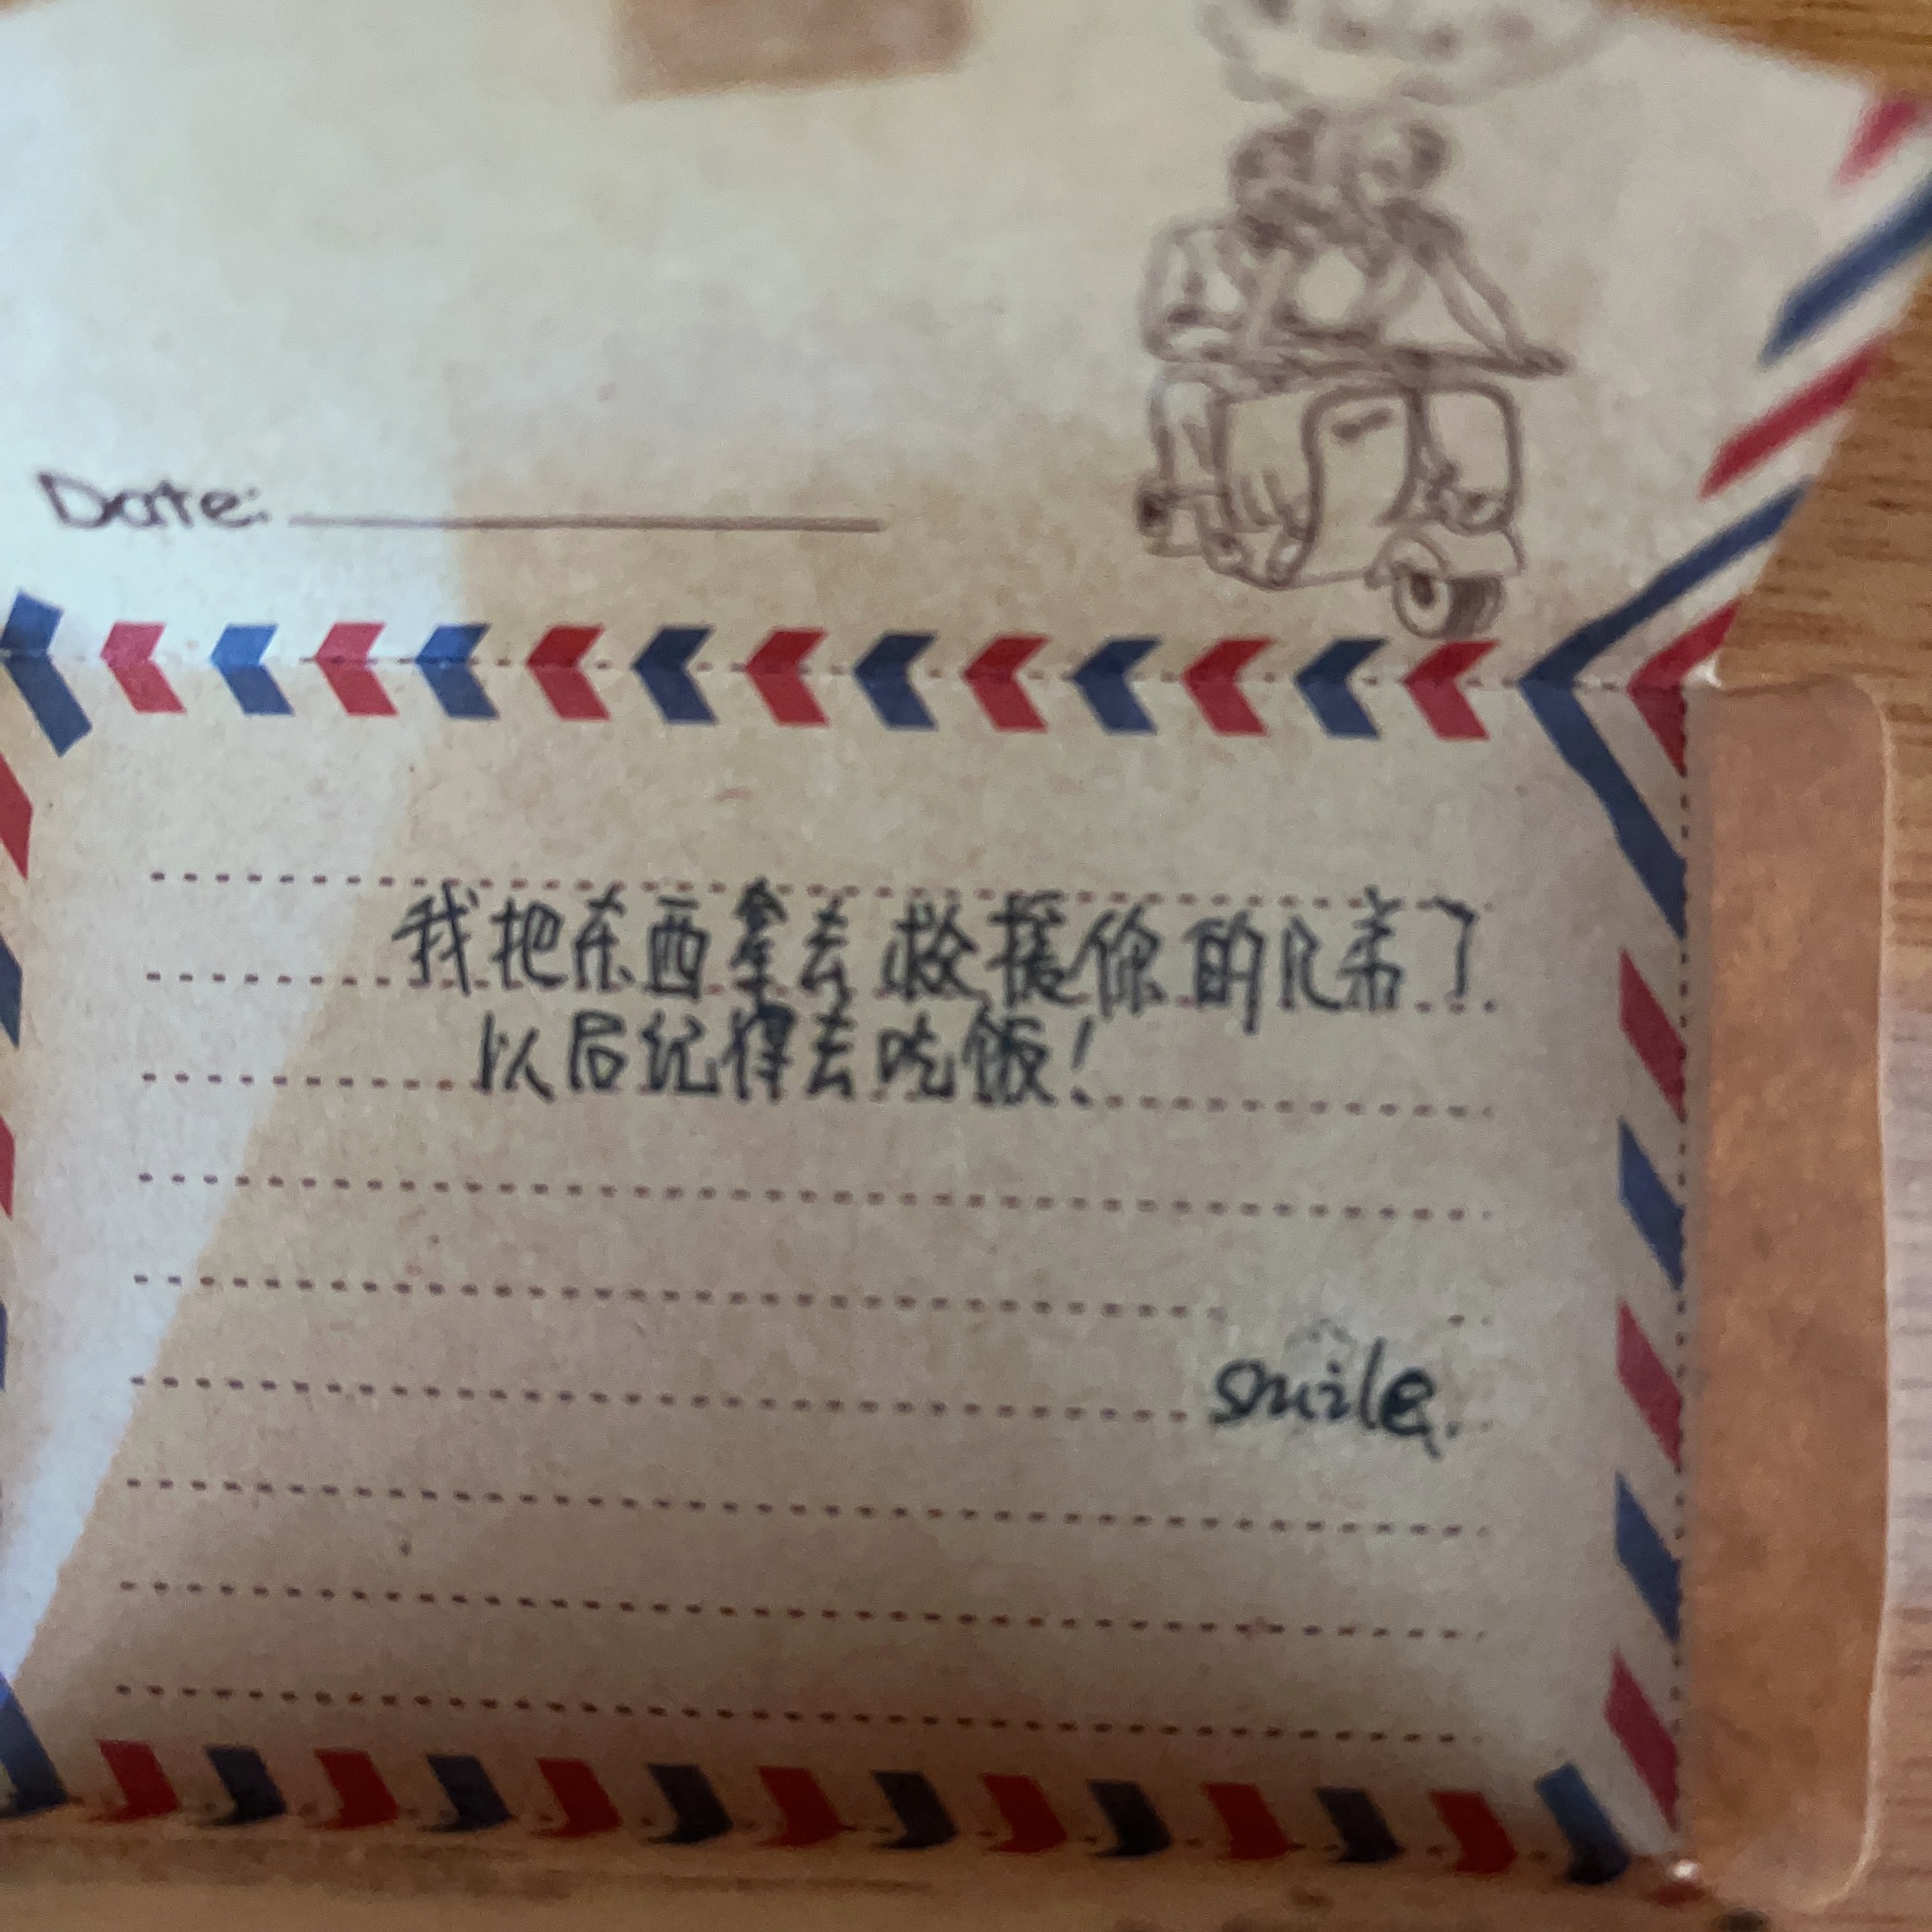 Date:
我把东西拿去救援你的兄弟了
以后记得去吃饭!
smile.